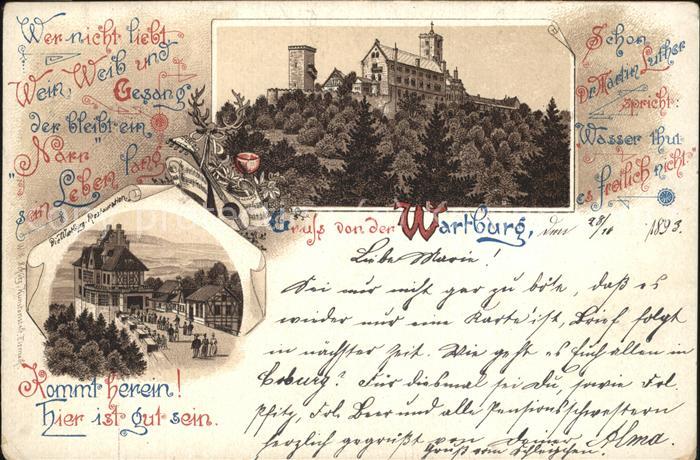 Wer nicht liebt
Wein, Weib und
Gesang
der bleibt ein
"Narr"
sein Leben lang
Schon
Dr. Martin Luther
spricht:
Wasser thut
es freilich nicht"
Gruß von der Wartburg, den 28/10 1893.
Die Wartburg-Restauration
Kommt herein!
Hier ist gut sein.
Liebe Marie!
Sei mir nicht gar zu böse, daß es
wieder nur eine Karte ist, Brief folgt
in nächster Zeit. Wie geht es Euch allen in
Coburg? Für diesmal sei Du, sowie Frl.
Pfitz, Frl. Beer und alle Pensionsschwestern
herzlich gegrüßt von Deiner Alma.
Gruß vom